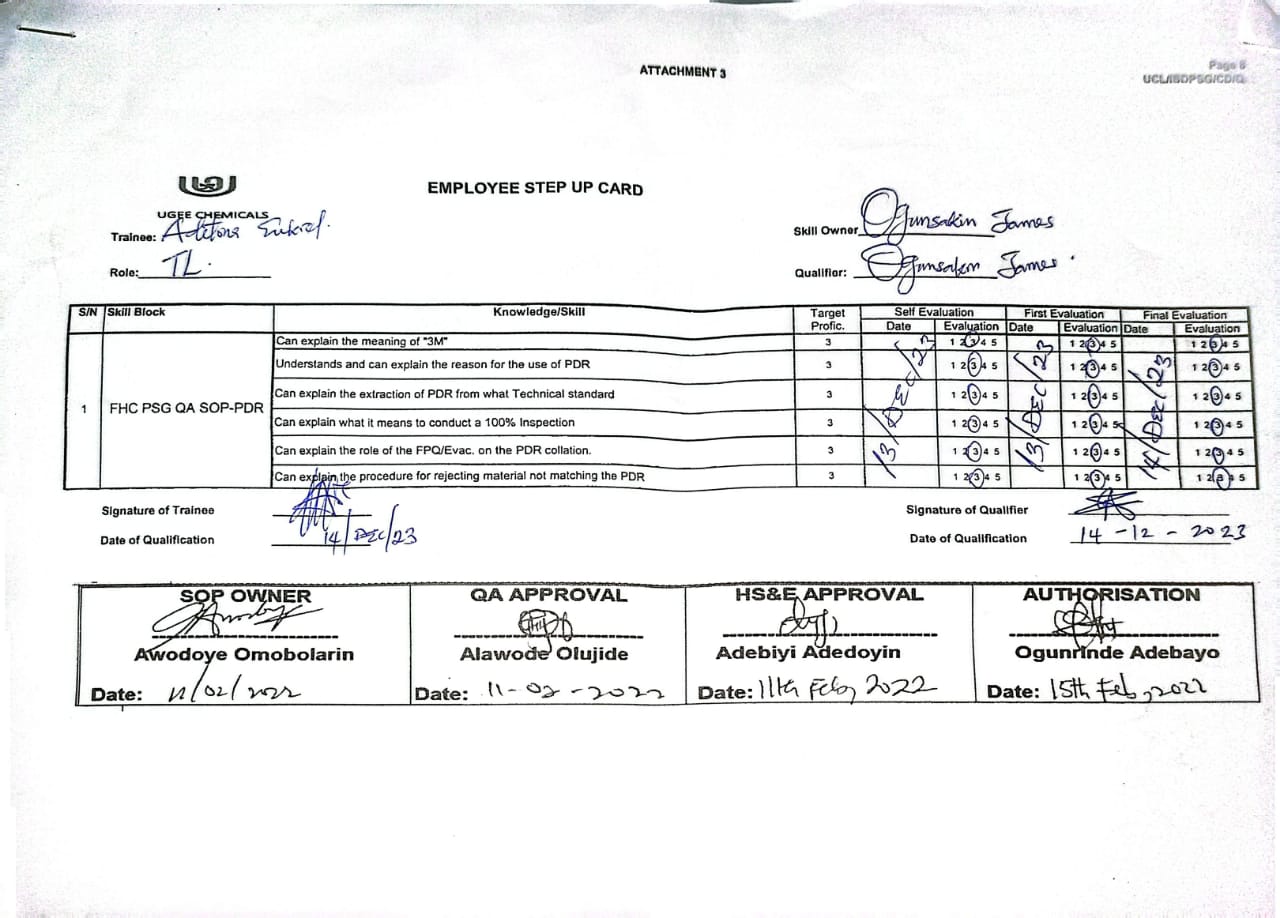 Page 8
ATTACHMENT 3
UGEE CHEMICALS
EMPLOYEE STEP UP CARD
Trainee:
Skill Owner Ogunsakin James
Role: TL.
Qualifier: Ogunsakin James
S/N Skill Block Knowledge/Skill Target Profic. Self Evaluation First Evaluation Final Evaluation
Date Evaluation Date Evaluation Date Evaluation
1 FHC PSG QA SOP-PDR
13/DEC/23 13/DEC/23 14/DEC/23
Can explain the meaning of "3M" 3 1 2 3 4 5 1 2 3 4 5 1 2 3 4 5
Understands and can explain the reason for the use of PDR 3 1 2 3 4 5 1 2 3 4 5 1 2 3 4 5
Can explain the extraction of PDR from what Technical standard 3 1 2 3 4 5 1 2 3 4 5 1 2 3 4 5
Can explain what it means to conduct a 100% Inspection 3 1 2 3 4 5 1 2 3 4 5 1 2 3 4 5
Can explain the role of the FPQ/Evac. on the PDR collation. 3 1 2 3 4 5 1 2 3 4 5 1 2 3 4 5
Can explain the procedure for rejecting material not matching the PDR 3 1 2 3 4 5 1 2 3 4 5 1 2 3 4 5
Signature of Trainee Signature of Qualifier
Date of Qualification 14/DEC/23 Date of Qualification 14-12-2023
SOP OWNER QA APPROVAL HS&E APPROVAL AUTHORISATION
Awodoye Omobolarin Alawode Olujide Adebiyi Adedoyin Ogunrinde Adebayo
Date: 11/02/2022 Date: 11-02-2022 Date: 11th Feb, 2022 Date: 15th Feb, 2022